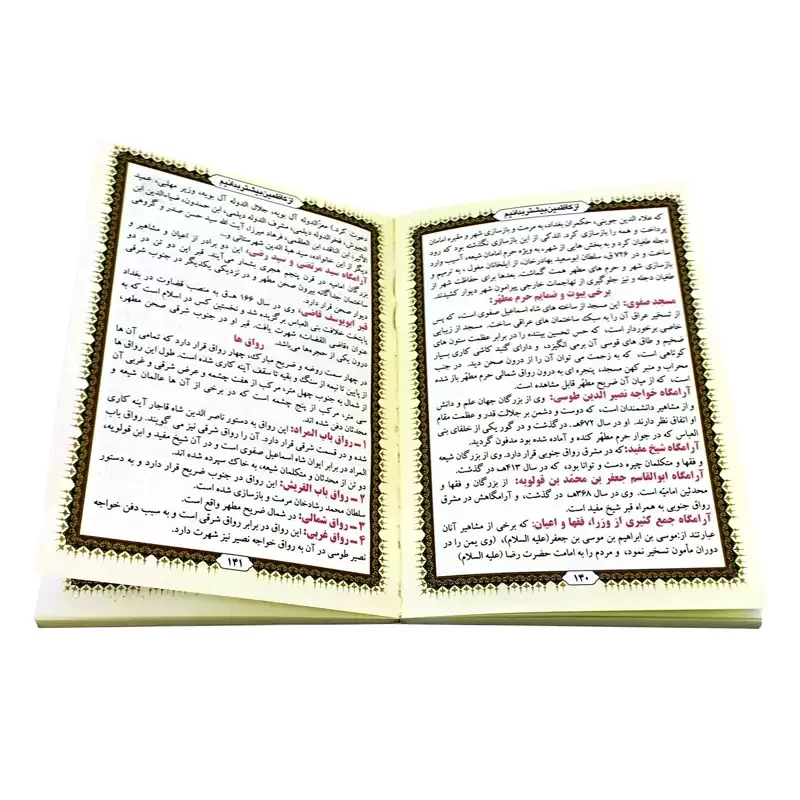 از کاظمین بیشتر بدانیم
که علاء الدین جوینی، حکمران بغداد، به مرمت و بازسازی شهر و مقبره امامان
پرداخت و همه را بازسازی کرد. اندکی از این بازسازی نگذشته بود که رود
دجله طغیان کرد و به بخش هایی از شهر، به ویژه حرم امامان شیعه، آسیب وارد
ساخت و در ۷۲۶ ق، سلطان ابوسعید بهادرخان، از ایلخانان مغول، به ترمیم و
بازسازی شهر و حرم های مطهر همت گماشت. بعدها برای حفاظت شهر از
طغیان دجله و نیز جلوگیری از تهاجمات خارجی پیرامون شهر دیوار کشیدند.
برخی بیوت و ضمایم حرم مطهّر:
مسجد صفوی: این مسجد از ساخته های شاه اسماعیل صفوی است، که پس
از تسخیر عراق آن را به سبک ساختمان های عراقی ساخت. مسجد از زیبایی
خاصی برخوردار است، که حس تحسین بیننده را در برابر عظمت ستون های
ضخیم و طاق های قوسی آن برمی انگیزد، و دارای گنبد کاشی کاری بسیار
کوتاهی است، که به زحمت می توان آن را از درون صحن دید. در جنب
محراب و منبر کهن مسجد، پنجره ای به درون رواق شمالی حرم مطهّر باز شده
است، که از میان آن ضریح مطهّر قابل مشاهده است.
آرامگاه خواجه نصیر الدین طوسی: وی از بزرگان جهان علم و دانش
و از مشاهیر دانشمندان است، که دوست و دشمن بر جلالت قدر و عظمت مقام
او اتفاق نظر دارند. او در سال ۶۷۲هـ درگذشت و در گور یکی از خلفای بنی
العباس که در جوار حرم مطهّر کنده و آماده شده بود مدفون گردید.
آرامگاه شیخ مفید: که در مشرق رواق جنوبی قرار دارد. وی از بزرگان شیعه
و فقها و متکلمان چیره دست و توانا بود، که در سال ۴۱۳هـ در گذشت.
آرامگاه ابوالقاسم جعفر بن محمّد بن قولویه: از بزرگان و فقها و
محدثین امامیّه است. وی در سال ۳۶۸هـ در گذشت، و آرامگاهش در مشرق
رواق جنوبی به همراه قبر شیخ مفید است.
آرامگاه جمع کثیری از وزراء، فقها و اعیان: که برخی از مشاهیر آنان
عبارتند از:موسی بن ابراهیم بن موسی بن جعفر(علیه السلام)، (وی یمن را در
دوران مأمون تسخیر نمود، و مردم را به امامت حضرت رضا (علیه السلام)
۱۴۰
از کاظمین بیشتر بدانیم
دعوت کرد.) معزالدوله آل بویه، جلال الدوله آل بویه، وزیر مهلبی، عمید
الجیوش، فخرالدوله دیلمی، مشرف الدوله دیلمی، ابن حمدون، ضیاءالدین ابن
الأثیر، ابن الناقد، ابن العلقمی، فرهاد میرزا، آیت الله سید حسن صدر و گروهی
دیگر از این خانواده، سید هبة الدین شهرستانی و...
آرامگاه سید مرتضی و سید رضی: این دو برادر از اعیان و مشاهیر و
بزرگان امامیه در قرن پنجم هجری بشمار می آیند. قبر این دو تن در دو
ساختمان جداگانه بیرون صحن مطهر و در نزدیکی یکدیگر در جنوب شرقی
دیوار صحن قرار دارد.
قبر ابویوسف قاضی: وی در سال ۱۶۶ هـ.ق به منصب قضاوت در بغداد
پایتخت خلافت بنی العباس برگزیده شد و نخستین کس در اسلام است که به
عنوان «قاضی القضات» شهرت یافت. قبر او در جنوب شرقی صحن مطهر،
درون یکی از حجره‌ها می‌باشد.
رواق ها
در چهار سمت روضه و ضریح مبارک، چهار رواق قرار دارد که تمامی آن ها
از پایین تا نیمه از سنگ و بقیه تا سقف آینه کاری شده است. طول این رواق ها
از شمال به جنوب چهل متر، مرکب از هفت چشمه و عرض شرقی و غربی آن
سی متر، مرکب از پنج چشمه است که در برخی از آن ها عالمان شیعه و
محدثان دفن شده اند.
۱ ــ رواق باب المراد: این رواق به دستور ناصر الدین شاه قاجار آینه کاری
شده و در قسمت شرقی قرار دارد. آن را رواق شرقی نیز می گویند. رواق باب
المراد در برابر ایوان شاه اسماعیل صفوی است و در آن شیخ مفید و ابن قولویه،
دو تن از محدثان و متکلمان شیعه، به خاک سپرده شده اند.
۲ ــ رواق باب القریش: این رواق در جنوب ضریح قرار دارد و به دستور
سلطان محمد رشادخان مرمت و بازسازی شده است.
۳ ــ رواق شمالی: در شمال ضریح مطهر واقع است.
۴ ــ رواق غربی: این رواق در برابر رواق شرقی است و به سبب دفن خواجه
نصیر طوسی در آن به رواق خواجه نصیر نیز شهرت دارد.
۱۴۱